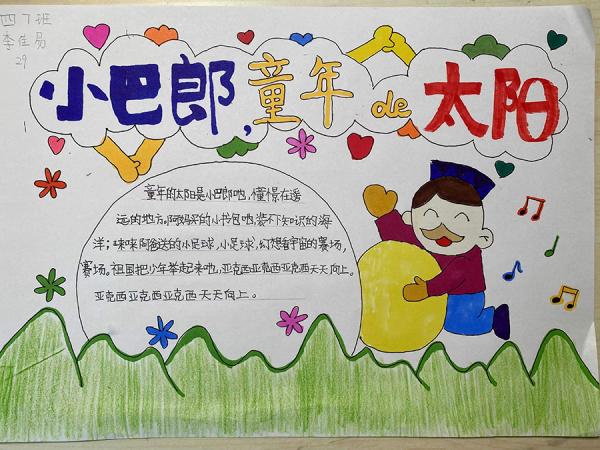 四7班
李佳易
29
小巴郎,童年de太阳
童年的太阳是小巴郎吔,憧憬在遥
远的地方。阿妈买的小书包吔,装不下知识的海
洋;咪咪阿爸送的小足球,小足球,幻想着宇宙的赛场,
赛场。祖国把少年举起来吔,亚克西亚克西亚克西天天向上。
亚克西亚克西亚克西天天向上。